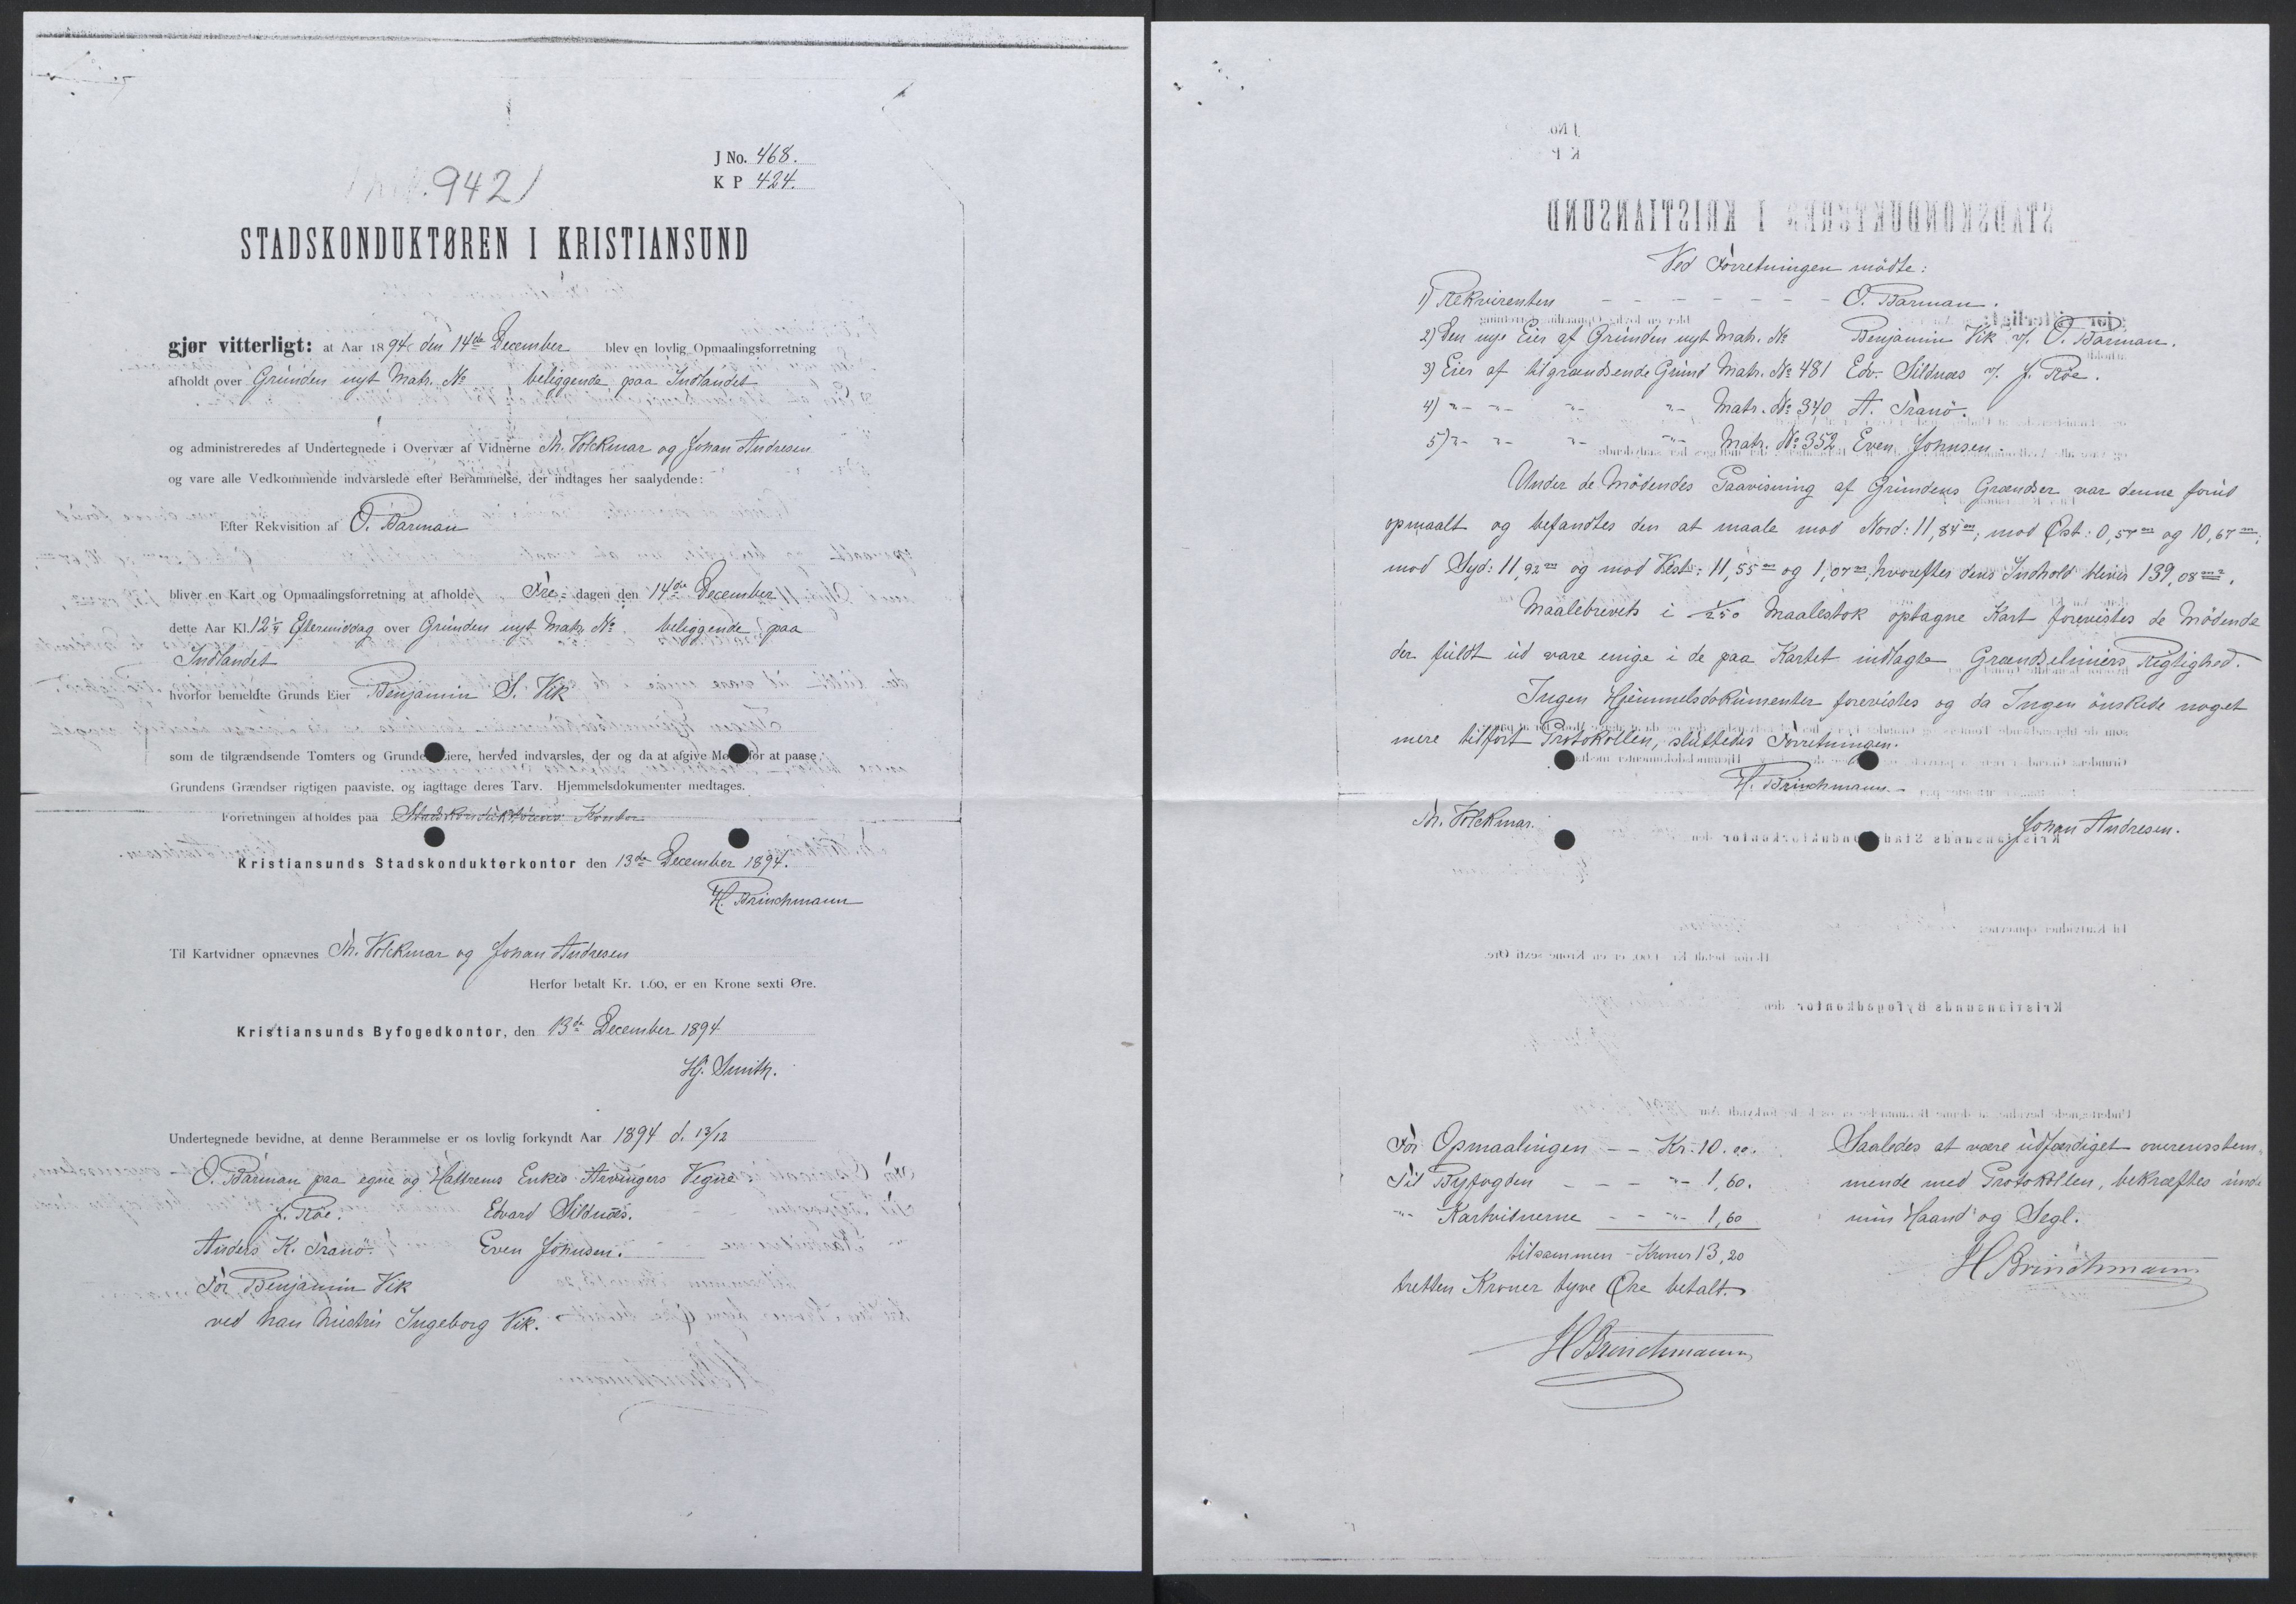 J No. 468.
K P 424.
942
STADSKONDUKTØREN I KRISTIANSUND
gjør vitterligt: at Aar 1894 den 14de December blev en lovlig Opmaalingsforretning
afholdt over Grunden nyt Matr. No beliggende paa Indlandet
og administreredes af Undertegnede i Overvær af Vidnerne Th. Volckmar og Johan Andresen
og vare alle Vedkommende indvarslede efter Berammelse, der indtages her saalydende:
Efter Rekvisition af O. Barman
bliver en Kart og Opmaalingsforretning at afholde Fre- dagen den 14de December
dette Aar Kl. 12¼ Eftermiddag over Grunden nyt Matr. No. beliggende paa
Indlandet
hvorfor bemeldte Grunds Eier Benjamin S. Vik
som de tilgrændsende Tomters og Grunde Eiere, herved indvarsles, der og da at afgive Mø for at paase
Grundens Grændser rigtigen paaviste, og iagttage deres Tarv. Hjemmelsdokumenter medtages.
Forretningen afholdes paa Stadskonduktørens Kontor
Kristiansunds Stadskonduktørkontor den 13de December 1894.
H. Brinchmann
Til Kartvidner opnævnes Th. Volckmar og Johan Andresen
Herfor betalt Kr. 1.60, er en Krone sexti Øre.
Kristiansunds Byfogedkontor, den 13de December 1894
Hj. Smith.
Undertegnede bevidne, at denne Berammelse er os lovlig forkyndt Aar 1894 d. 13/12
O. Barman paa egne og Hattrems Enkes Arvingers Vegne
J. Røe. Edvard Sildnæs.
Anders K. Tranø. Even Johnsen.
For Benjamin Vik
ved han Mustru Ingeborg Vik.
Ved Forretningen mødte:
1) Rekvirenten - - - - - - - O. Barman.
2) Den nye Eier af Grunden nyt Matr. No Benjamin Vik v/. O. Barman.
3) Eier af tilgrændsende Grund Matr. No 481 Edv. Sildnæs v/. J. Røe.
4) "- "- "- "- Matr. No 340 A. Tranø.
5) "- "- "- "- Matr. No 352 Even Johnsen.
Under de Mødendes Paavisning af Grundens Grændser var denne forud
opmaalt og befandtes den at maale mod Nord: 11,84 m; mod Øst: 0,57 m og 10,67 m;
mod Syd: 11,92 m og mod Vest: 11,55 m og 1,07 m, hvorefter dens Indhold bliver 139,08 m2.
Maalebrevets i 1/250 Maalestok optagne Kart forevistes de Mødende
der fuldt ud vare enige i de paa Kartet indlagte Grændseliniers Rigtighed.
Ingen Hjemmelsdokumenter forevistes og da Ingen ønskede noget
mere tilført Protokollen, sluttedes Forretningen.
H. Brinchmann.
Th. Volckmar. Johan Andresen.
For Opmaalingen - - Kr. 10.00.
Til Byfogden - - - "- 1,60.
"- Kartvidnerne - - "- 1,60
tilsammen - Kroner 13,20
tretten Kroner tyve Øre betalt.
H Brinchmann
Saaledes at være udfærdiget overensstem-
mende med Protokollen, bekræftes under
min Haand og Segl.
H Brinchmann